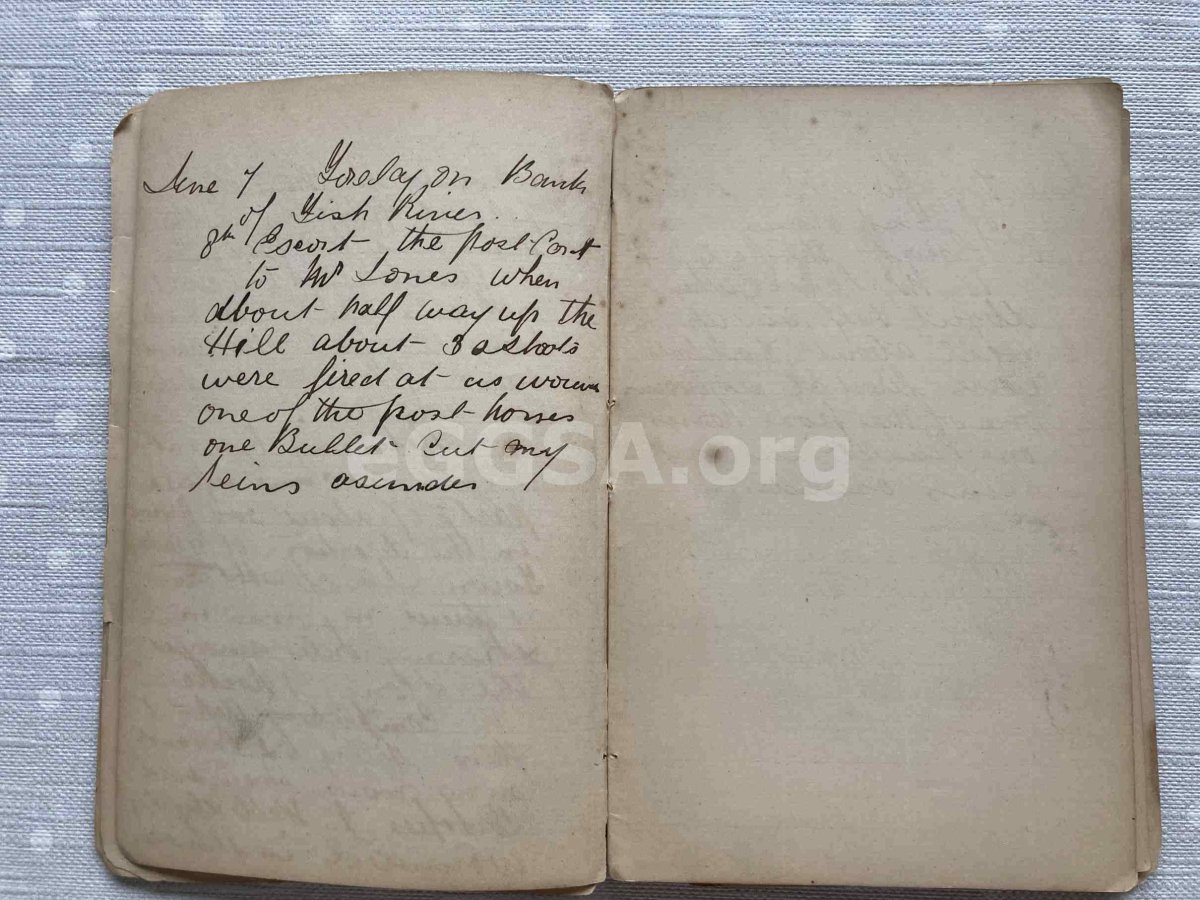 June 7 on Bank
of Fish River
8th Escort the post Cart
to Mr Jones when
about half way up the
Hill about 3 shots
were fired at us
one of the post horses
one Bullet Cut my
reins asunder
eGGSA.org